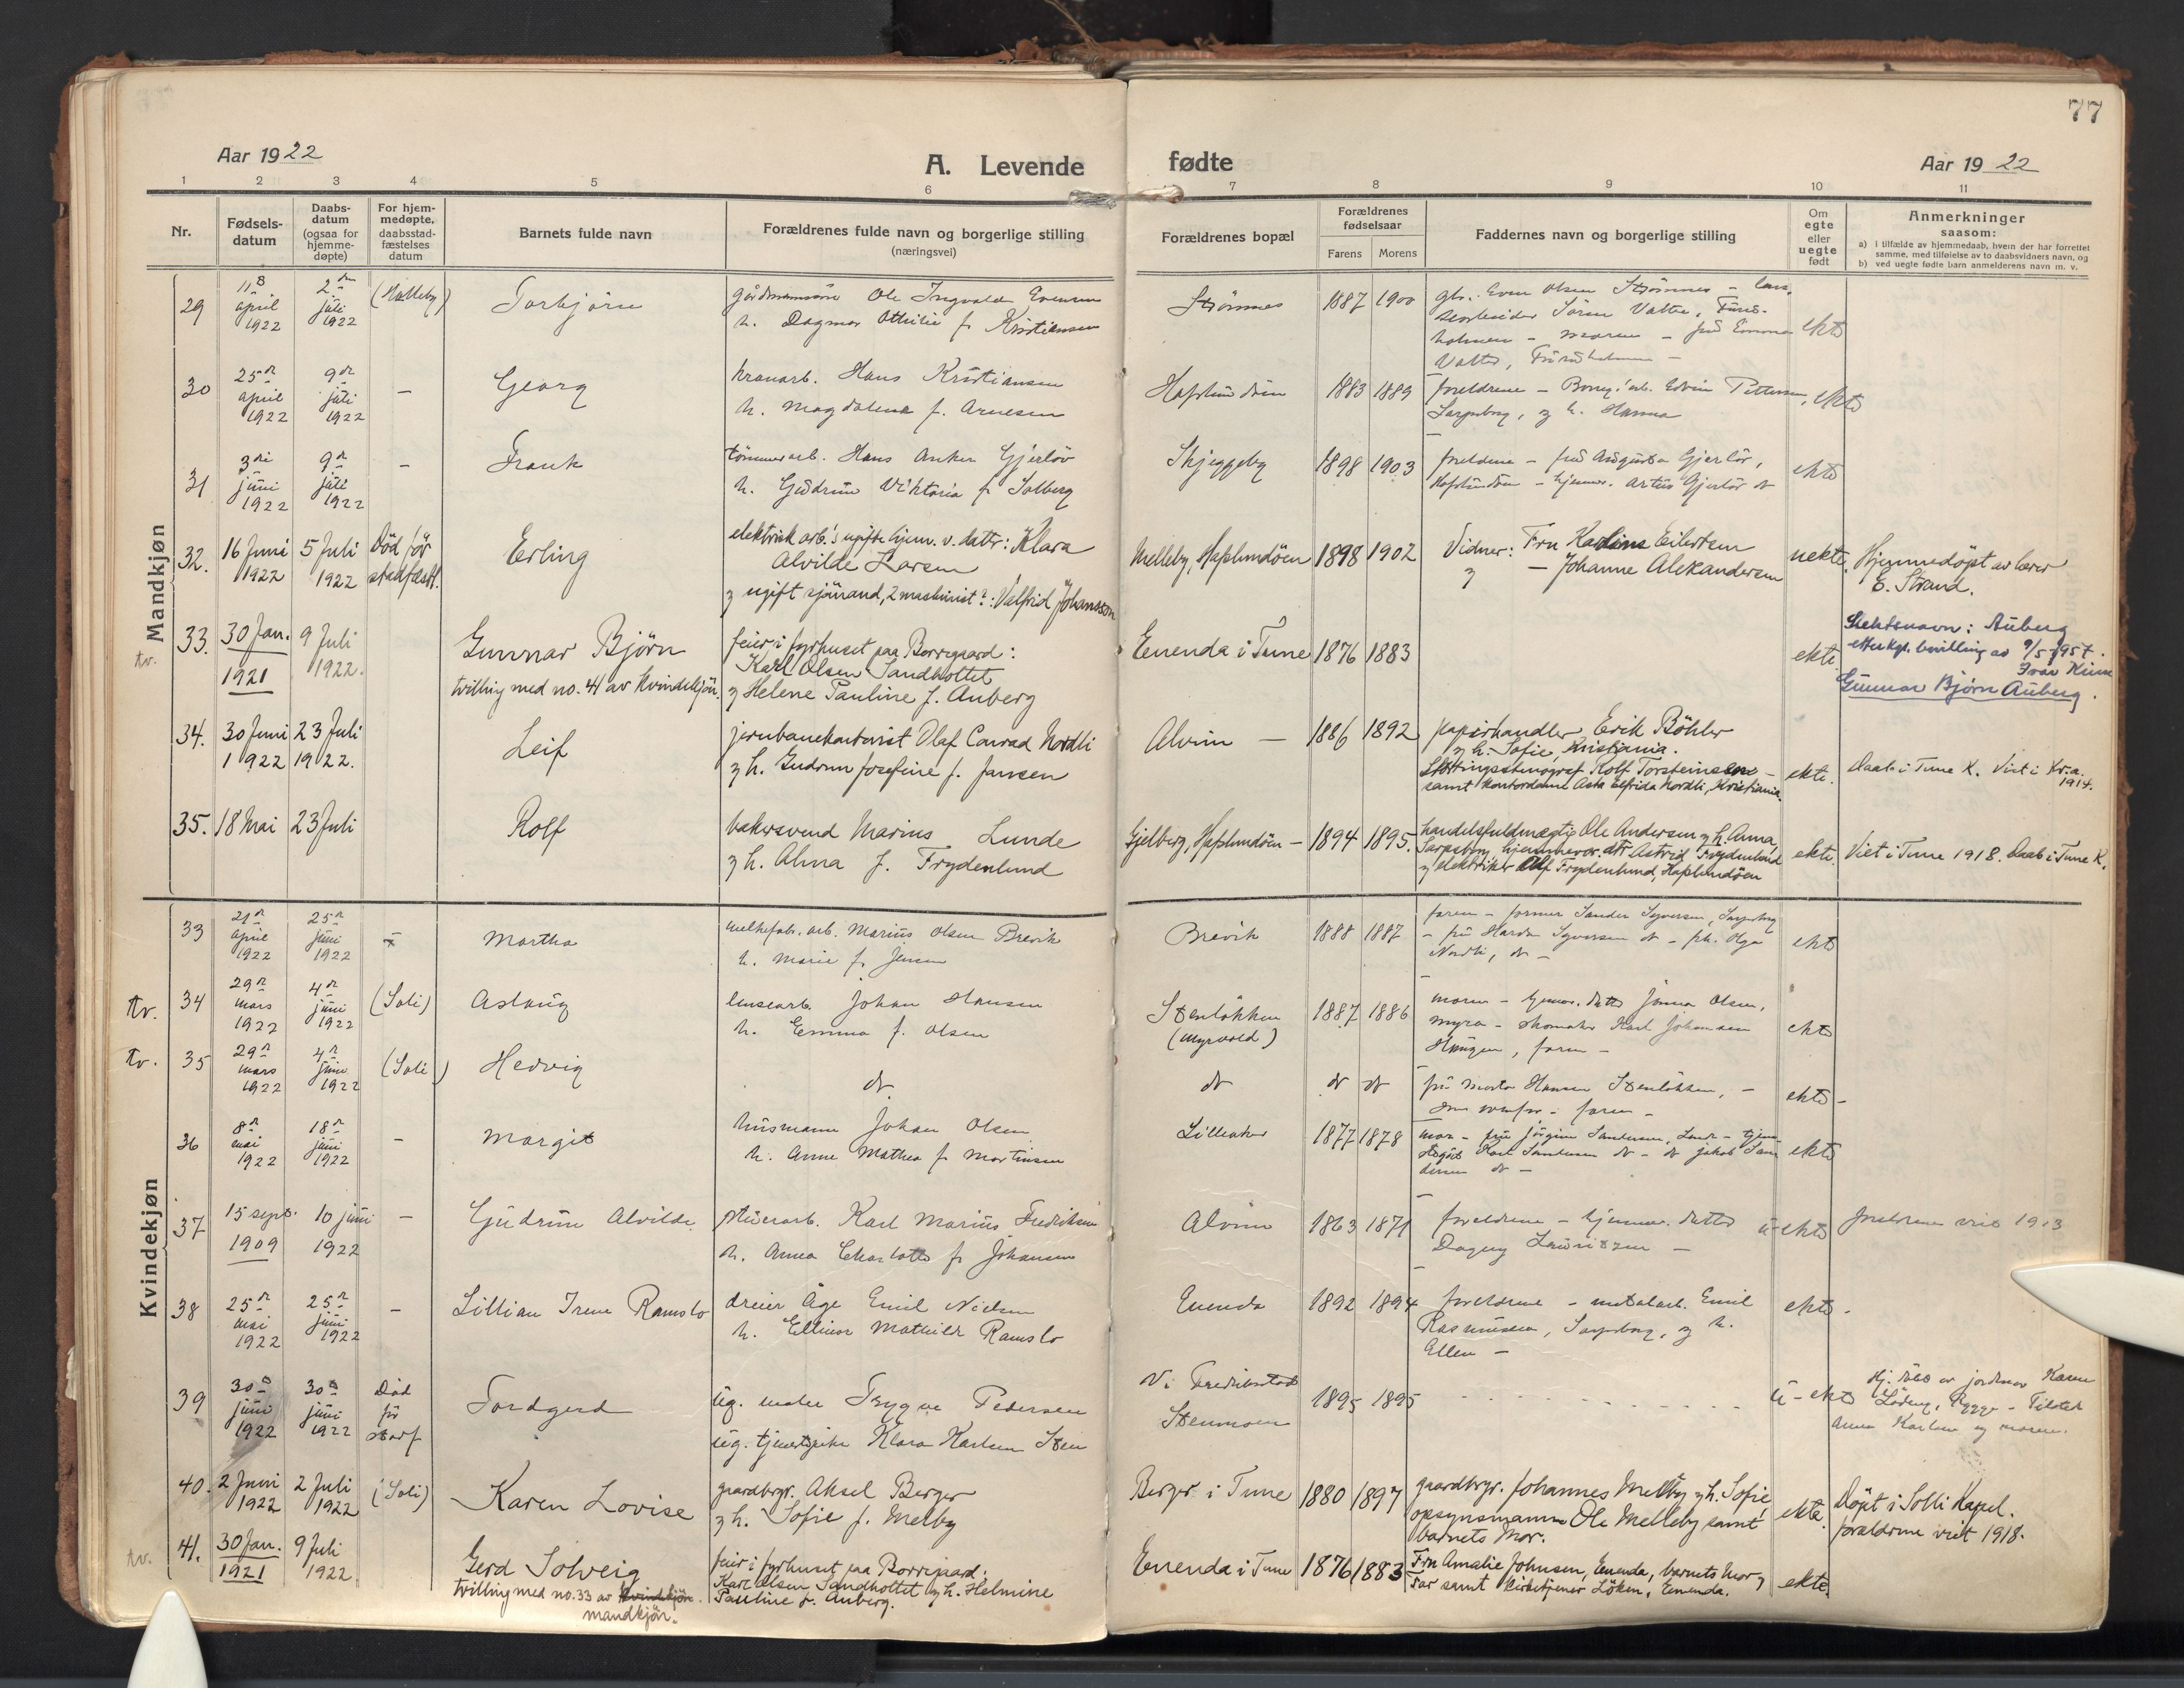 77
Aar 1922
A. Levende fødte
Aar 1922
1 2 3 4 5 6 7 8 9 10 11
Nr.
Fødsels-
datum
Daabs-
datum
(ogsaa for
hjemme-
døpte)
For hjem-
medøpte,
daabsstad-
fæstelses
datum
Barnets fulde navn
Forældrenes fulde navn og borgerlige stilling
(næringsvei)
Forældrenes bopæl
Forældrenes
fødselsaar
Farens Morens
Faddernes navn og borgerlige stilling
Om
egte
eller
uegte
født
Anmerkninger
saasom:
a) i tilfælde av hjemmedaab, hvem der har forrettet
samme, med tilføielse av to daabsvidners navn, og
b) ved uegte fødte barn anmelderens navn m. v.
Mandkjøn
29
april
1922
juli
1922
Torbjörn
Ole Ingvald Evensen
h. Dagmar Othilie f. Kristiansen
Strömnes
1887 1900
Even Olsen Strömnes
Valter,
ekte
30
25
april
1922
9
juli
1922
–
Georg
kranarb. Hans Kristiansen
h. Magdalena f. Arnesen
Hafslundsöen
1883 1889
foreldrene – Edvin Pettersen,
Sarpsborg, og h. Hanna
ekte
31
3
juni
1922
9
juli
1922
–
Frank
tömmerarb. Hans Anker Gjerlöv
h. Gudrun Viktoria f. Solberg
Skjeggeby
1898 1903
foreldrene – frú Augusta Gjerlöv,
Gjerlöv
ekte
32.
16 Juni
1922
5 Juli
1922
Död för
stadfæst.
Erling
elektrisk arb.'s ugifte hjem. v. dattr: Klara
Alvilde Larsen
og ugift sjömand, 2 maskinist?: Valfrid Johansson
Melleby, Hafslundsöen
1898 1902
Vidner: Fru Karline Eilertsen
og – Johanne Aleksandersen
uekte.
Hjemmedöpt av lærer
E. Strand.
tv.
33.
30 Jan.
1921
9 Juli
1922.
Gunnar Björn
tvilling med no. 41 av kvindekjön.
feier i fyrhuset paa Borregaard:
Karl Olsen Sandholtet
og Helene Pauline f. Auberg
Enenda i Tune
1876 1883
ekte.
Slektsnavn: Auberg
etter kgl. bevilling av 9/5 1957.
Gunnar Bjørn Auberg.
34.
30 Juni
1922
23 Juli
1922.
Leif
jernbanekontorist Olaf Conrad Nordli
og h. Gudrun Josefine f. Jansen
Alvim –
1886 1892
papirhandler Erik Böhler
og h. Sofie, Kristiania.
Stortingsstenograf Rolf Torsteinsen –
samt kontordame Asta Elfrida Nordli, Kristiania.
ekte.
Daab i Tune K. Viet i Kr.a.
1914.
35.
18 Mai
23 Juli
Rolf
bakersvend Marius Lunde
og h. Alma f. Frydenlund
Gjelberg, Hafslundsöen –
1894 1895.
handelsfuldmægtig Ole Andersen og h. Anna,
Sarpsborg, hjemmevær. dtr Astrid Frydenlund
og elektriker Alf Frydenlund, Hafslundsöen
ekte.
Viet i Tune 1918. Daab i Tune K.
Kvindekjøn
33
21
april
1922
25
juni
1922
Martha
Marius Olsen Brevik
h. Marie f. Jensen
Brevik
1888 1887
faren – former Sander Syversen, Sarpsborg
Syversen
Nordli,
ekte
tv.
34
29
mars
1922
4
juni
1922
(Soli)
Aslaug
lensearb. Johan Hansen
h. Emma f. Olsen
Stenlökken
(Myrvold)
1887 1886
moren – Olsen,
Myra – skomaker Karl Johansen
Haugen, faren –
ekte
tv.
35
29
mars
1922
4
juni
1922
(Soli)
Hedvig
do
do
do do
frú Marta Hansen Stenlökken, –
faren –
ekte –
36
8
mai
1922
18
juni
1922
–
Margit
husmann Johan Olsen
h. Anne Mathea f. Martinsen
Lilleaker
1877 1878
Karl
ekte
37
15 sept.
1909
10 juni
1922
–
Gudrun Alvilde
Karl Marius Fredriksen
h. Anna Charlotte f. Johansen
Alvim
1863 1871
foreldrene – hjemmev. datter
Dagny Lauritzen –
u-ekte
foreldrene viet 1913
38
25
mai
1922
25
juni
1922
–
Lillian Irene Ramslo
dreier Åge Emil Nielsen
h. Ellinor Mathilde Ramslo
Enenda
1892 1894
foreldrene – metalarb. Emil
Rasmussen, Sarpsborg, og h.
Ellen –
ekte.
39
30
juni
1922
30
juni
1922
Död
för
stadf
Tordgerd
ug. maler Trygve Pedersen
ug. tjenestpike Klara Karlsen Sten
V. Fredrikstad
Stenmoen
1895 1895
u-ekte
Hj. döbt av jordmor Karen
Rygge –
Anna Karlsen og moren.
40.
2 Juni
1922
2 Juli
1922
(Soli)
Karen Lovise
gaardbrgr. Aksel Berger
og h. Sofie f. Melby
Berger i Tune
1880 1897
gaardbrgr. Johannes Melby og h. Sofie,
opsynsmann Ole Melleby samt
barnets mor.
ekte.
Döpt i Solli Kapel.
foreldrene viet 1918.
tv.
41.
30 Jan.
1921
9 Juli
1922
Gerd Solveig
tvilling med no. 33 av kvindekjön.
mandkjön.
feier i fyrhuset paa Borregaard.
Karl Olsen Sandholtet og h. Helmine
Pauline f. Auberg.
Enenda i Tune
1876 1883
Fru Amalie Johnsen, Enenda, barnets mor og
far samt kirketjener Löken, Enenda.
ekte.